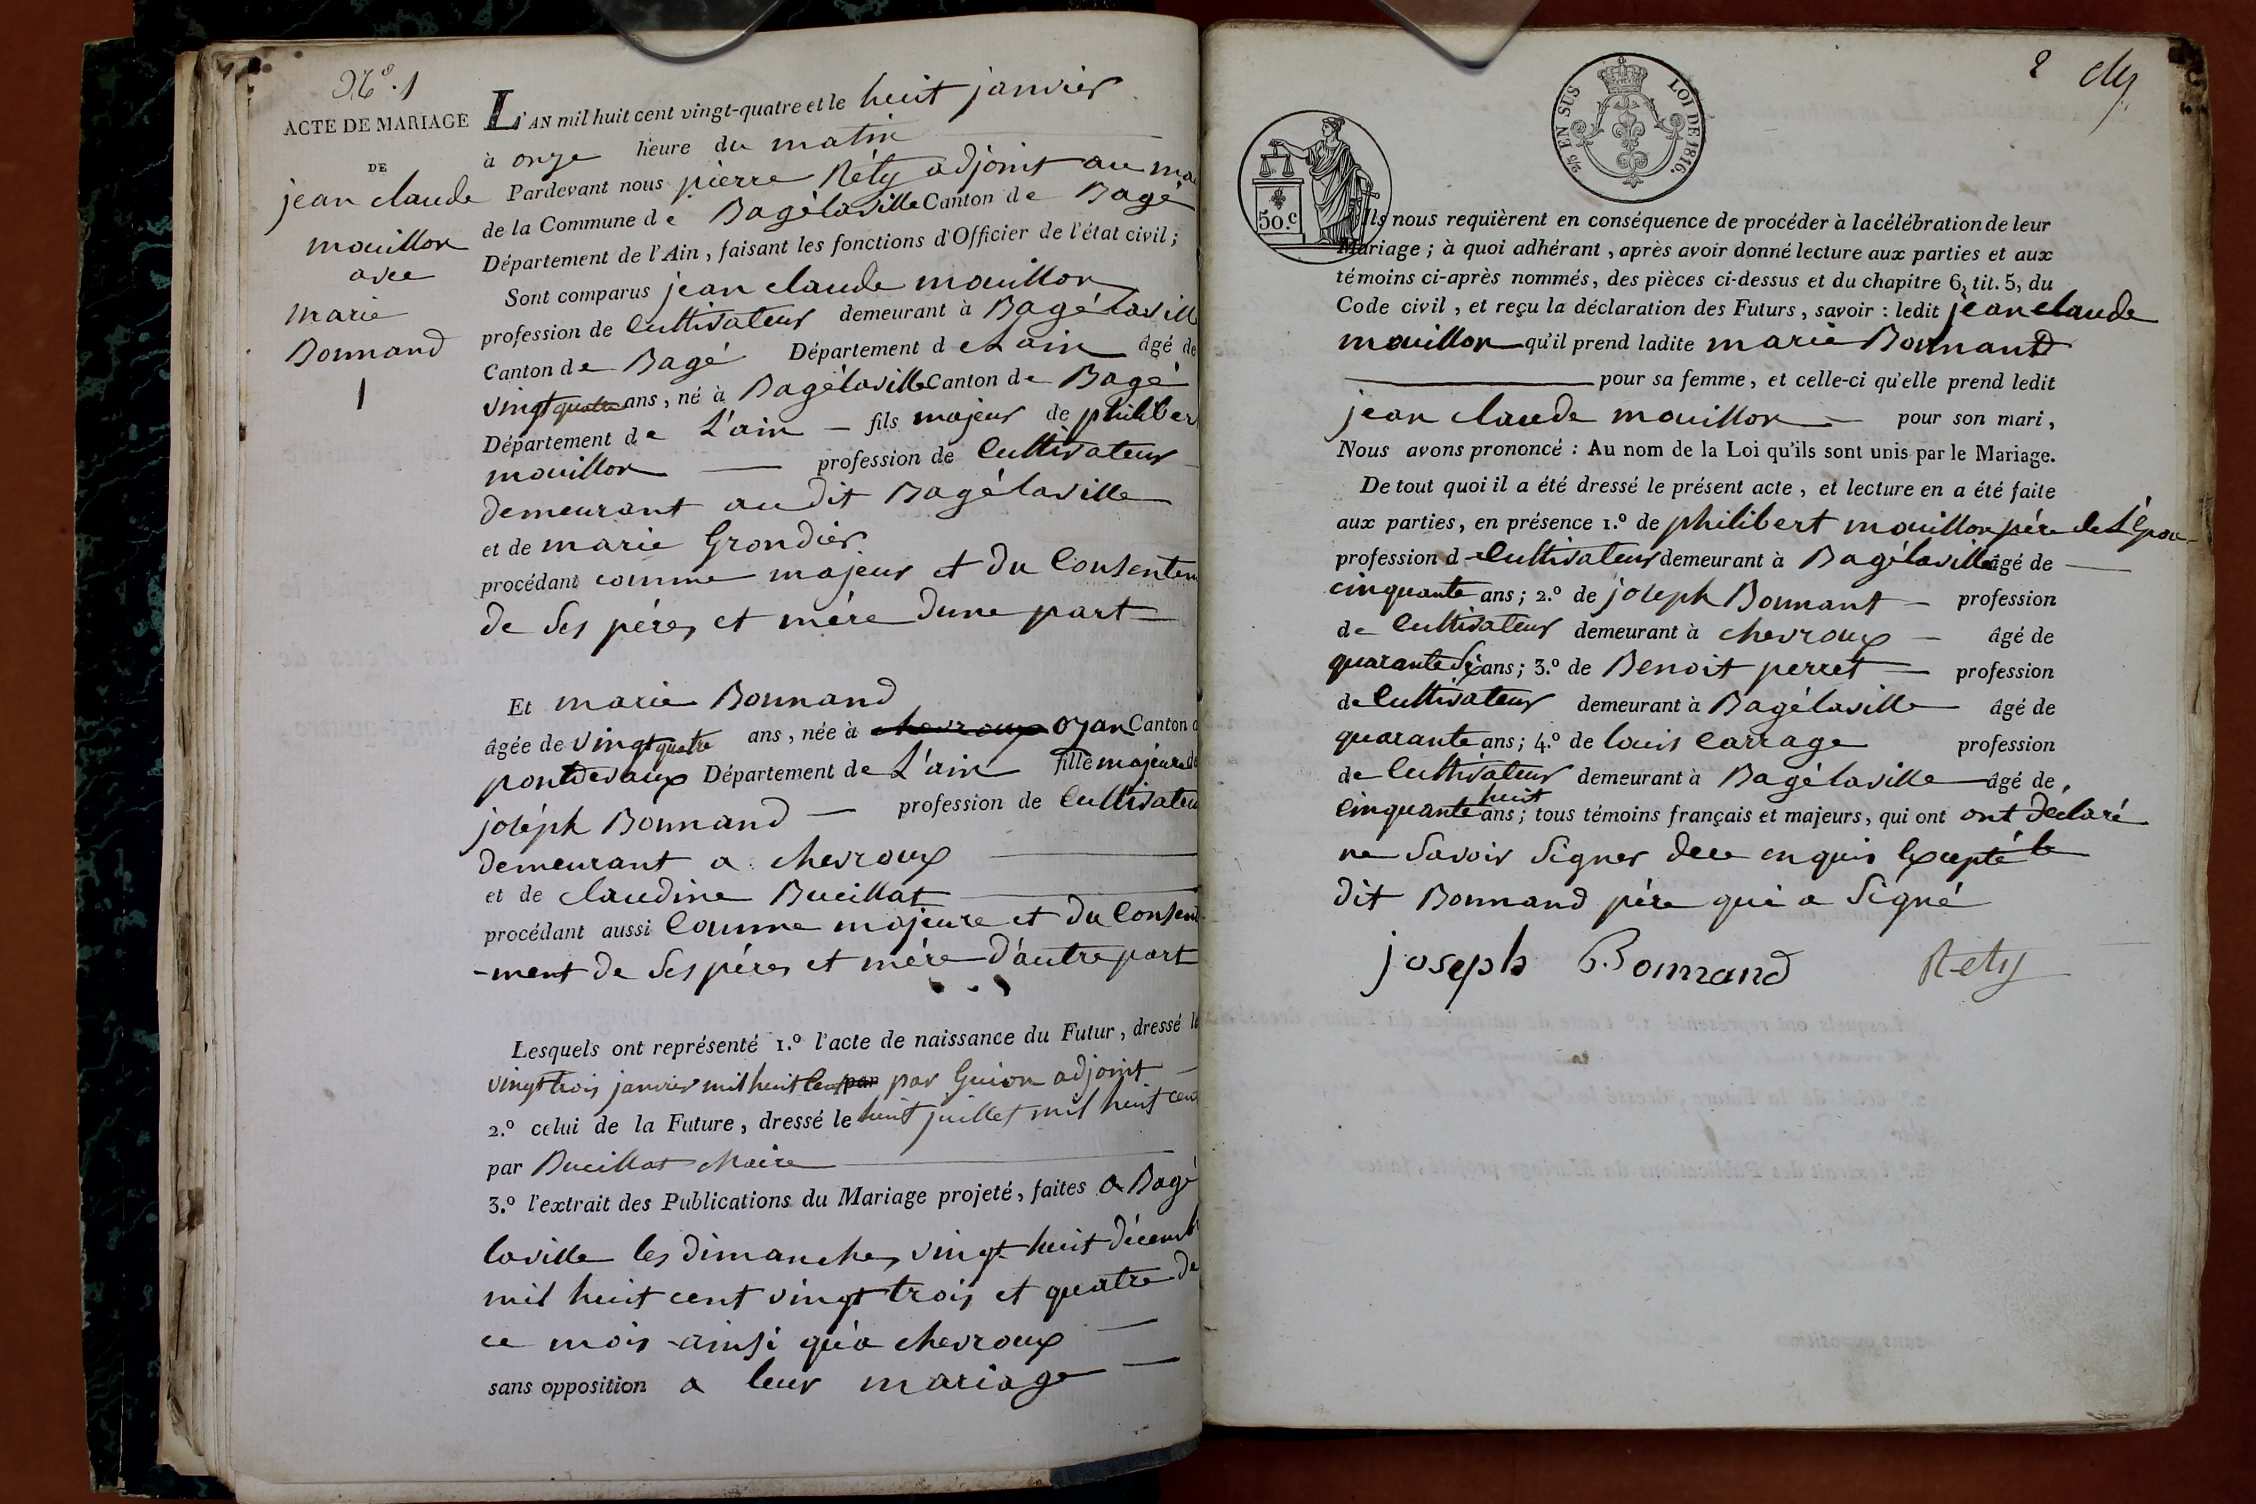 N.º 1
ACTE DE MARIAGE
DE
jean claude
mouillon
avec
marie
Bonnand
1
L'AN mil huit cent vingt-quatre et le huit janvier
à onze heure du matin
Pardevant nous pierre Réty adjoint au ma
de la Commune de Bagélaville Canton de Bagé
Département de l'Ain, faisant les fonctions d'Officier de l'état civil;
Sont comparus jean claude mouillon
profession de Cultivateur demeurant à Bagélavill
Canton de Bagé Département de L'ain âgé de
vingt quatre ans, né à Bagélaville Canton de Bagé
Département de L'ain fils majeur de philiber
mouillon profession de Cultivateur
demeurant audit Bagélaville
et de marie Grondier
procédant comme majeur et du Consentem
de ses pére, et mére dune part
Et marie Bonnand
âgée de vingt quatre ans, née à chevroux ozan Canton d
pontdevaux Département de L'ain fille majeure de
joséph Bonnand profession de Cultivateu
demeurant a chevroux
et de claudine Bucillat
procédant aussi Comme majeure et du Consent
-ment de ses pére, et mére D'autre part
Lesquels ont représenté 1.º l'acte de naissance du Futur, dressé le
vingt trois janvier mil huit Cent par par Guion adjoint
2.º celui de la Future, dressé le huit juillet mil huit cent
par Bucillat Maire
3.º l'extrait des Publications du Mariage projeté, faites a Bagé
laville les dimanche, vingt huit décemb
mil huit cent vingt trois et quatre de
ce mois ainsi qu'a chevroux
sans opposition a leur mariage
2
2/5 EN SUS LOI DE 1816.
50.c
Ils nous requièrent en conséquence de procéder à la célébration de leur
Mariage; à quoi adhérant, après avoir donné lecture aux parties et aux
témoins ci-après nommés, des pièces ci-dessus et du chapitre 6, tit. 5, du
Code civil, et reçu la déclaration des Futurs, savoir: ledit jean claude
mouillon qu'il prend ladite marie Bonnand
pour sa femme, et celle-ci qu'elle prend ledit
jean claude mouillon pour son mari,
Nous avons prononcé: Au nom de la Loi qu'ils sont unis par le Mariage.
De tout quoi il a été dressé le présent acte, et lecture en a été faite
aux parties, en présence 1.º de philibert mouillon pére de L'Epou
profession de Cultivateur demeurant à Bagélaville âgé de
cinquante ans; 2.º de joseph Bonnant profession
de Cultivateur demeurant à chevroux âgé de
quarante six ans; 3.º de Benoit perret profession
de Cultivateur demeurant à Bagélaville âgé de
quarante ans; 4.º de louis Carrage profession
de Cultivateur demeurant à Bagélaville âgé de
Cinquante huit ans; tous témoins français et majeurs, qui ont ont déclaré
ne savoir signer de ce enquis Excepté le
dit Bonnand pére qui a signé
joseph Bonnand Rety